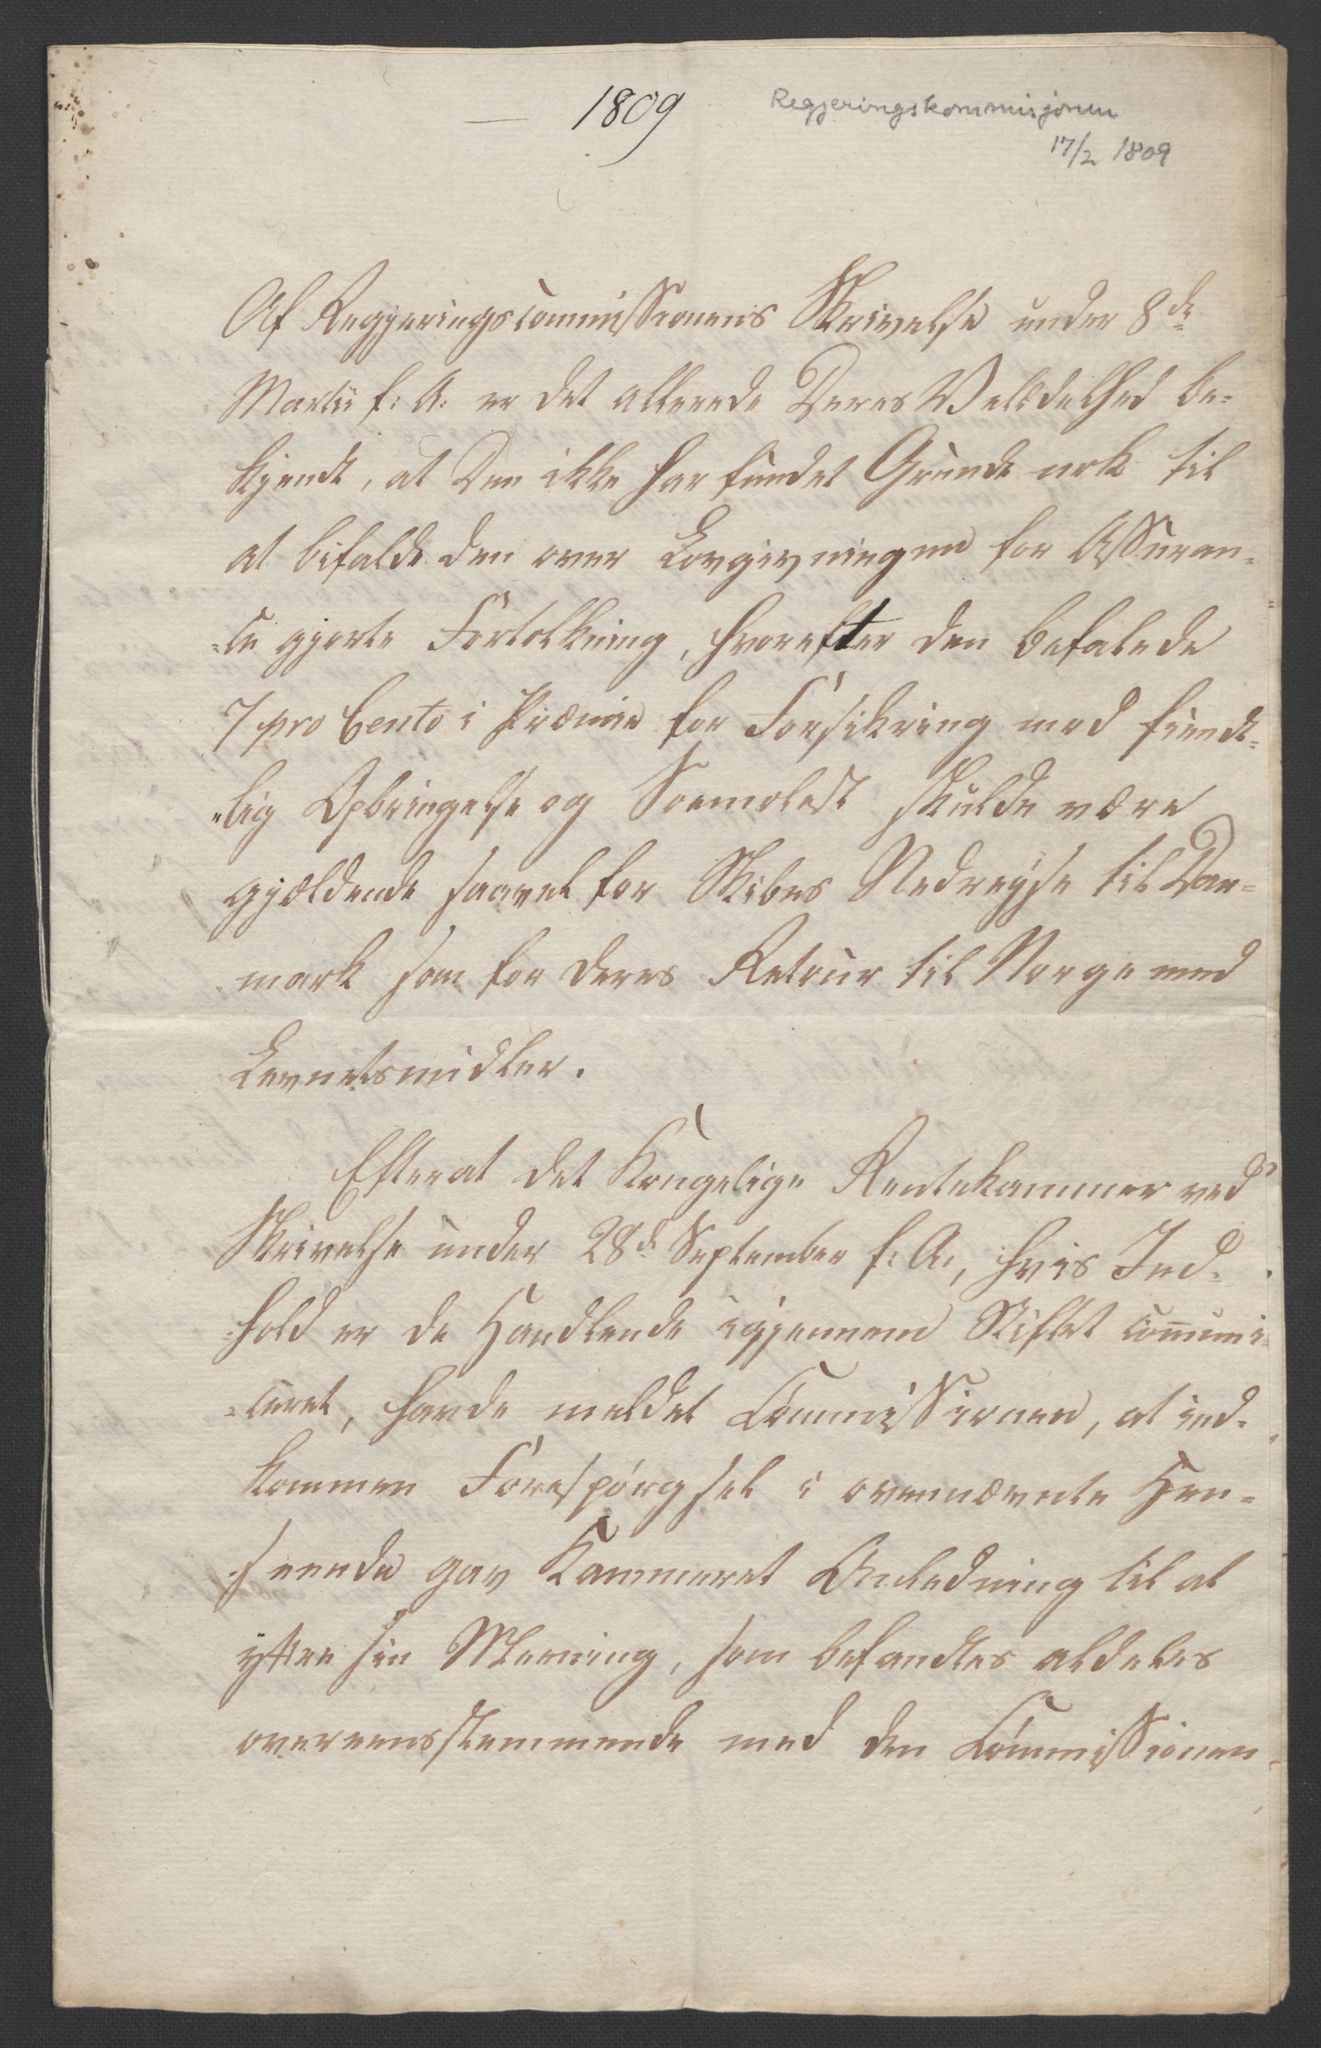 1809
Regjeringskommisjonen
17/2 1809
Af Regjeringscommissionens Skrivelse under 8de
Martii f: A: er det allerede Deres Velædelhed be-
kjendt, at Den ikke har fundet Grunde nok til
at bifalde den over Lovgivningen for Assuran-
-cer gjorte Fortolkning, hvorefter den befalede
7 pro Cento i Præmie for Forsikring mod fiendt-
-lig Opbringelse og Soemolest skulde være
gjældende saavel for Skibes Nedreyse til Dan-
mark som for deres Retour til Norge med
Levnetsmidler.
Efterat det Kongelige Rentekammer ved
Skrivelse under 28d September f: A:, hvis Ind-
-hold er de Handlende igjennem Stiftet communi-
-ceret, havde meldet Commissionen, at ind-
kommen Forespørgsel i ovennævnte Hen-
-seende gav Kammeret Anledning til at
yttre sin Mening, som befandtes aldeles
overeensstemmende med den Commissionen